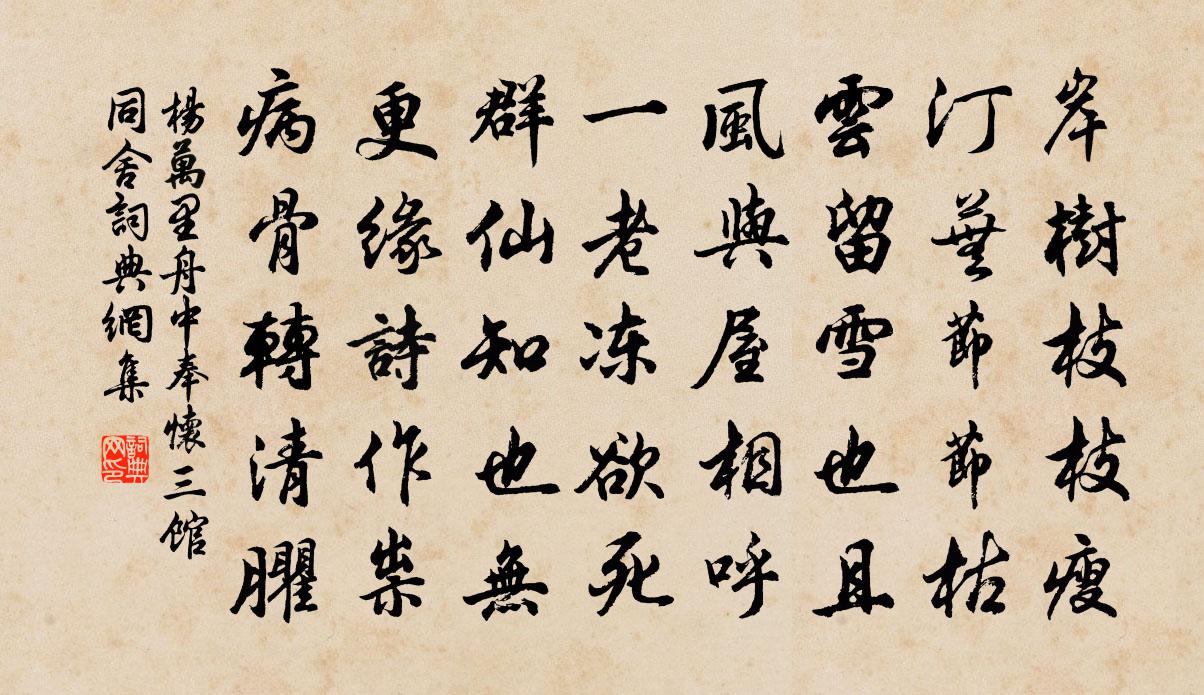 岸樹枝枝瘦
汀蕪節節枯
雲留雪也且
風與屋相呼
一老凍欲死
群仙知也無
更緣詩作祟
病骨轉清臞
楊萬里舟中奉懷三館
同舍詞典網集
詞典
网印